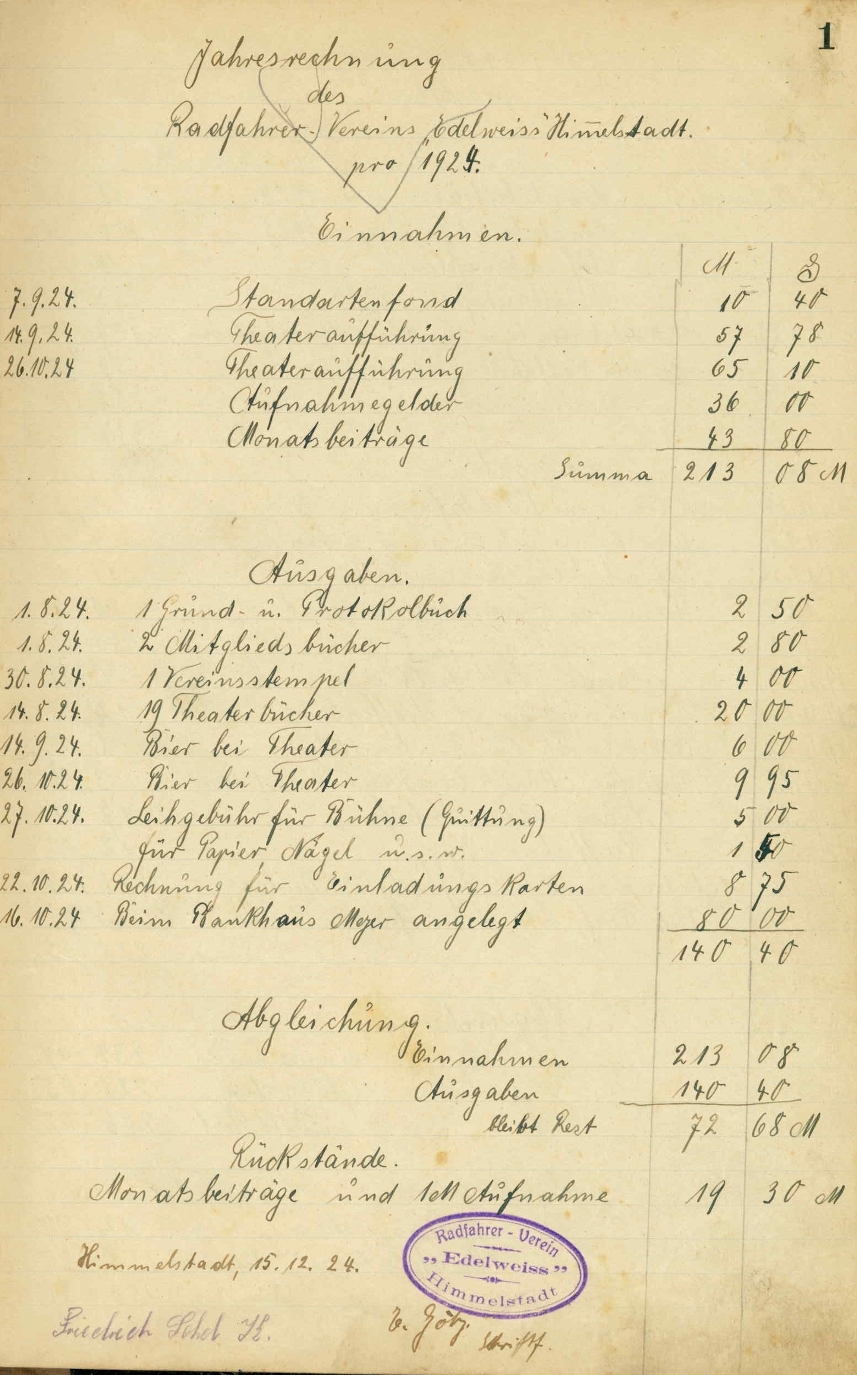 1
Jahresrechnung
des
Radfahrer-Vereins „Edelweiss" Him̅elstadt.
pro 1924.
Einnahmen.
M ₰
7.9.24. Standartenfond 10 40
14.9.24. Theateraufführung 57 78
26.10.24 Theateraufführung 65 10
Aufnahmegelder 36 00
Monatsbeiträge 43 80
Summa 213 08 M
Ausgaben.
1.8.24. 1 Grund- u. Protokolbuch 2 50
1.8.24. 2 Mitgliedsbücher 2 80
30.8.24. 1 Vereinsstempel 4 00
14.8.24. 19 Theaterbücher 20 00
14.9.24. Bier bei Theater 6 00
26.10.24. Bier bei Theater 9 95
27.10.24. Leihgebühr für Bühne (Quittung) 5 00
für Papier, Nägel u.s.w. 1 40
22.10.24. Rechnung für Einladungskarten 8 75
16.10.24 Beim Bankhaus Meyer angelegt 80 00
140 40
Abgleichung.
Einnahmen 213 08
Ausgaben 140 40
bleibt Rest 72 68 M
Rückstände.
Monatsbeiträge und 1 M Aufnahme 19 30 M
Radfahrer-Verein
„Edelweiss"
Himmelstadt
Himmelstadt, 15.12.24.
Friedrich
E. Götz. Schriftf.